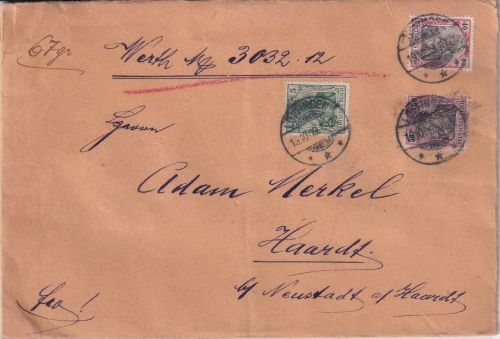 67 gr
Werth M 3032.12
Herrn
Adam Merkel
Haardt.
b/ Neustadt a/Haardt
fco!
5
40